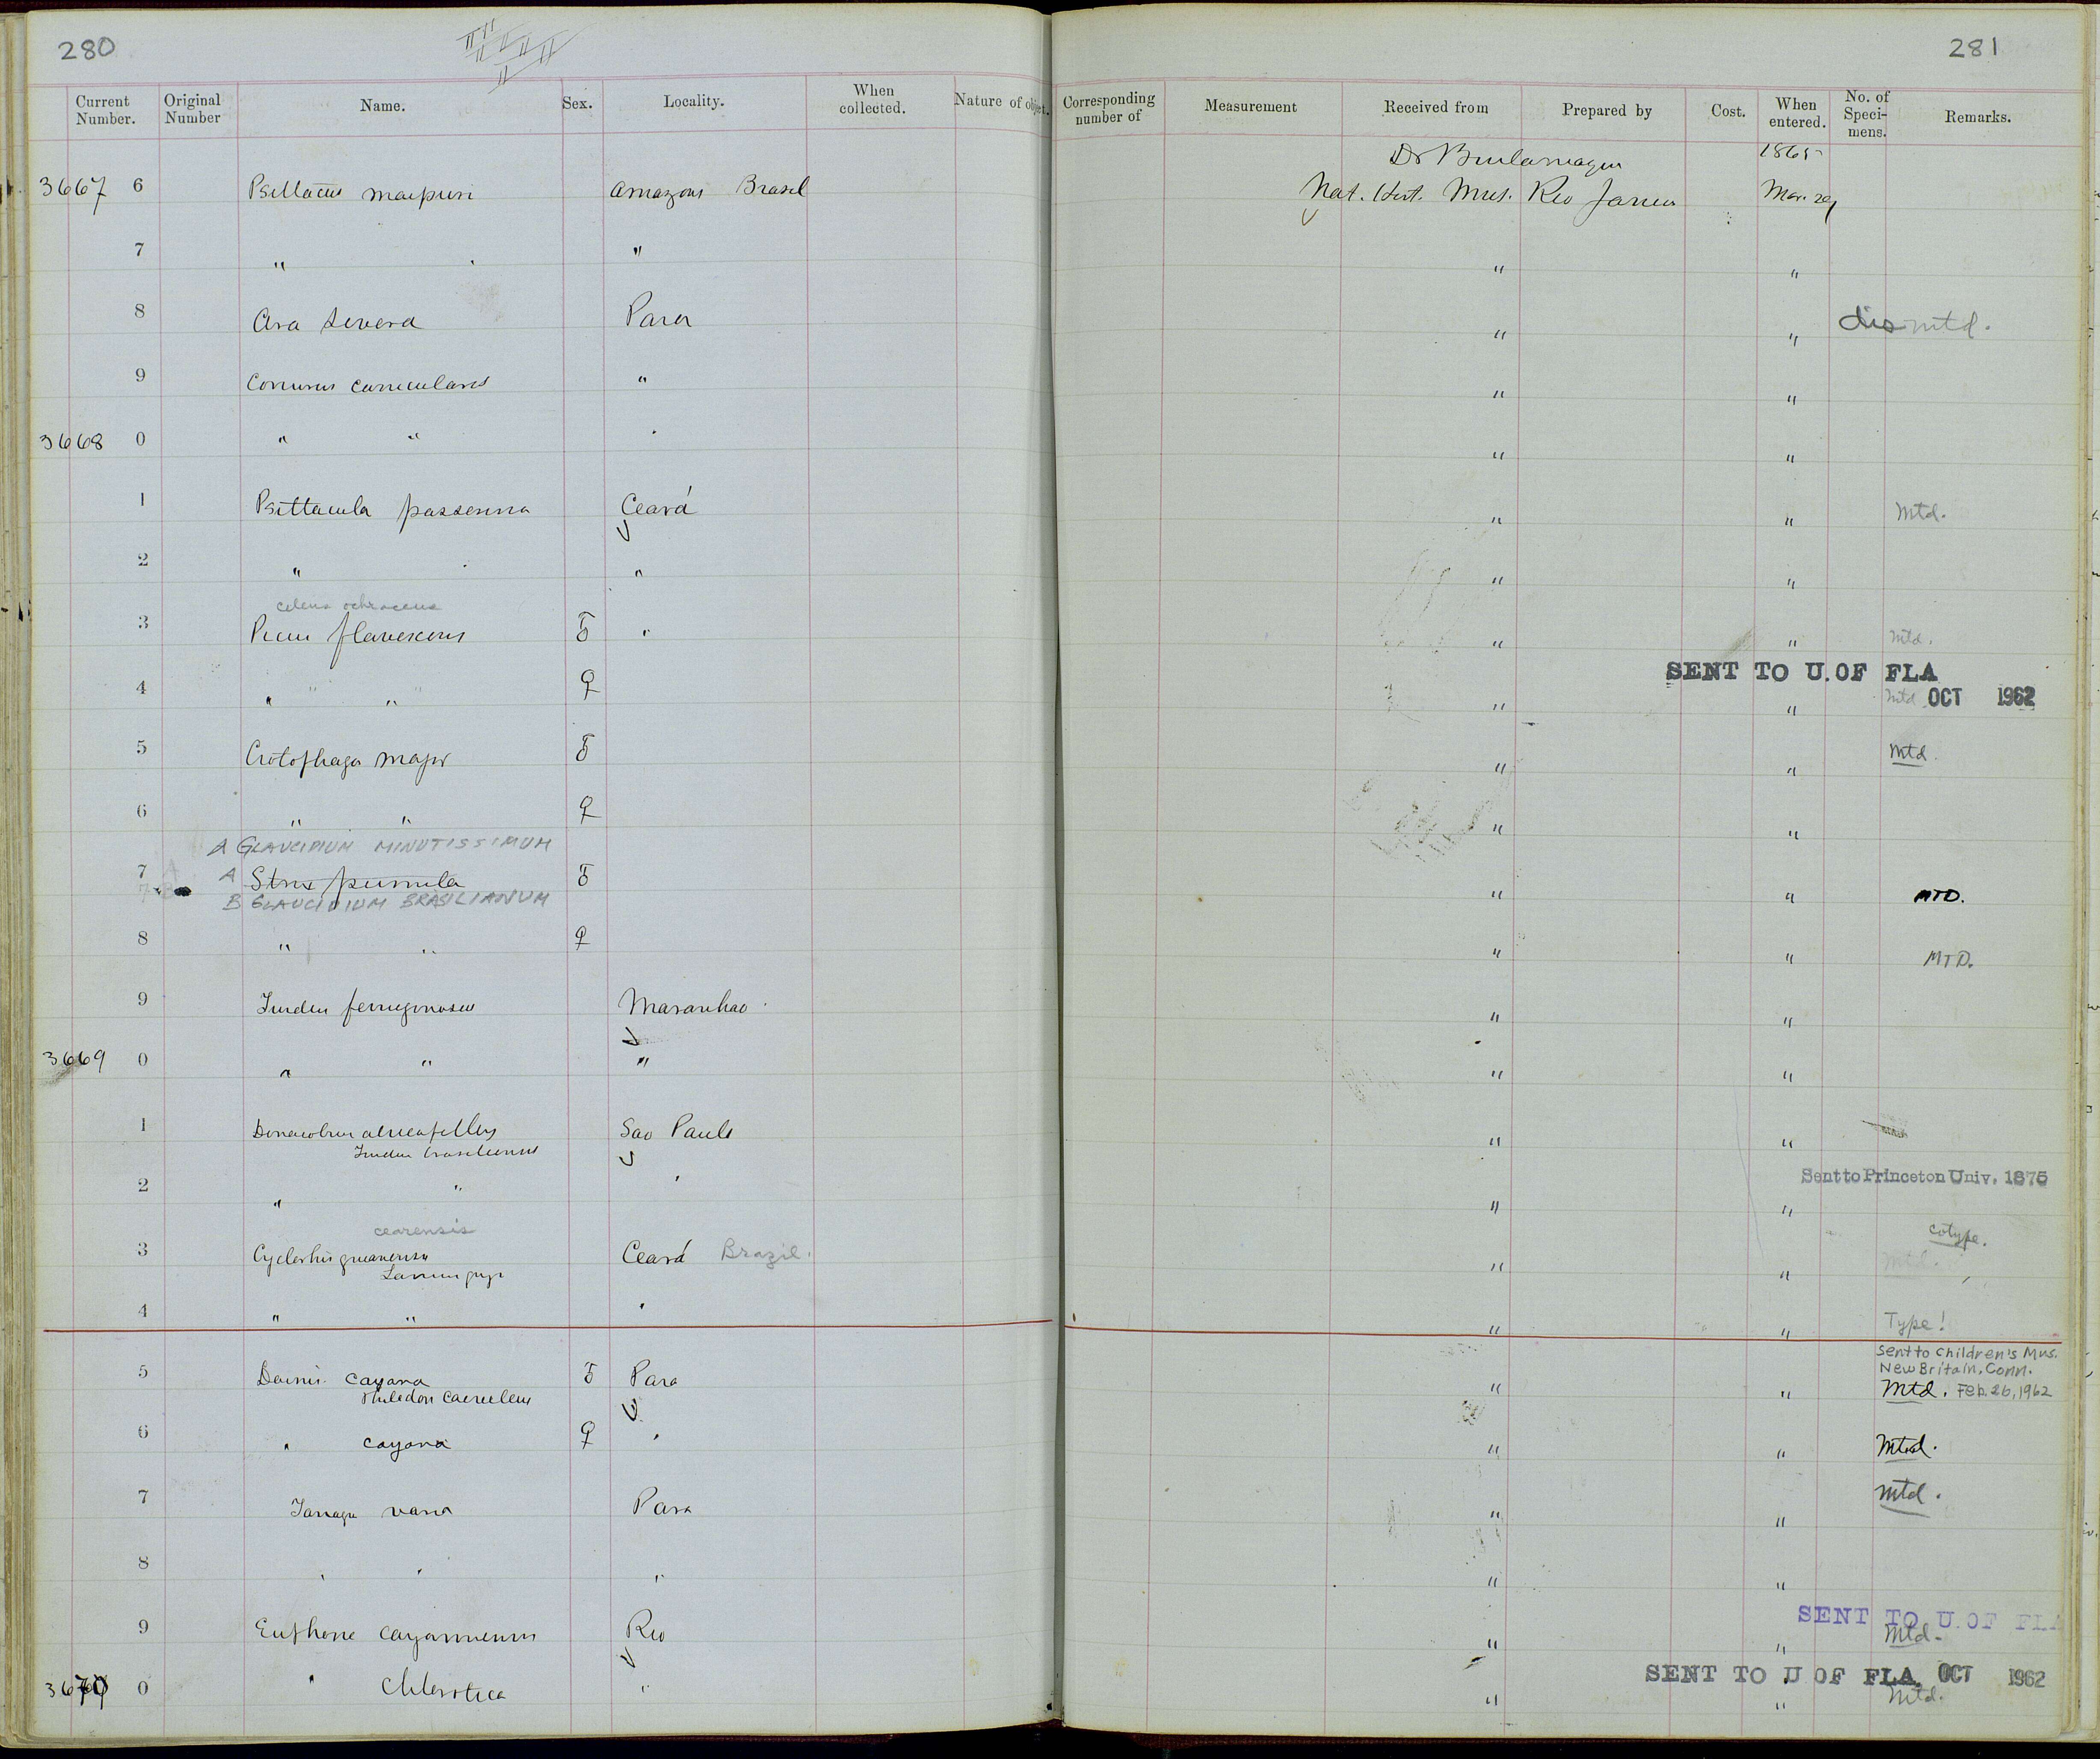 280
281
Current Number. Original Number Name. Sex. Locality. When collected. Nature of object. Corresponding number of Measurement Received from Prepared by Cost. When entered. No. of Speci-mens. Remarks.
Dr 1865
3667 6 Psittacus maipuri Amazons Brasil Nat. Hist. Mus. Rio Janeiro Mar. 29
7 " " " "
8 Ara severa Para " " dismtd.
9 Conurus cunicularis " " "
3668 0 " " " " "
1 Psittacula passerina Ceará " " Mtd.
2 " " " "
celeus ochraceus
3 Picus flavescens ♂ " " " Mtd.
SENT TO U. OF FLA
4 " " ♀ " " Mtd OCT 1962
5 Crotophaga major ♂ " " Mtd.
6 " " ♀ " "
A GLAUCIDIUM MINUTISSIMUM
7 A Strix pumila ♂ " " MTD.
B GLAUCIDIUM BRASILIANUM
8 " " ♀ " " MTD.
9 Turdus ferrugonosus Maranhao " "
3669 0 " " " " "
1 Donacobius atricapillus Sao Paulo " "
Turdus brasiliensis
Sent to Princeton Univ. 1875
2 " " " " "
cearensis cotype.
3 Cyclorhis guianensis Ceará Brazil. " " Mtd.
Lanius
4 " " " " " Type!
Sent to Children's Mus.
New Britain, Conn.
5 Dacnis cayana ♂ Para " " Mtd. Feb. 26, 1962
Philedon caeruleus
6 " cayana ♀ " " " Mtd.
7 Tanagra Para " " Mtd.
8 " " " " "
SENT TO U. OF FLA
9 Euphone cayannensis Rio " " Mtd.
SENT TO U OF FLA. OCT 1962
3670 0 " chlorotica " " " Mtd.